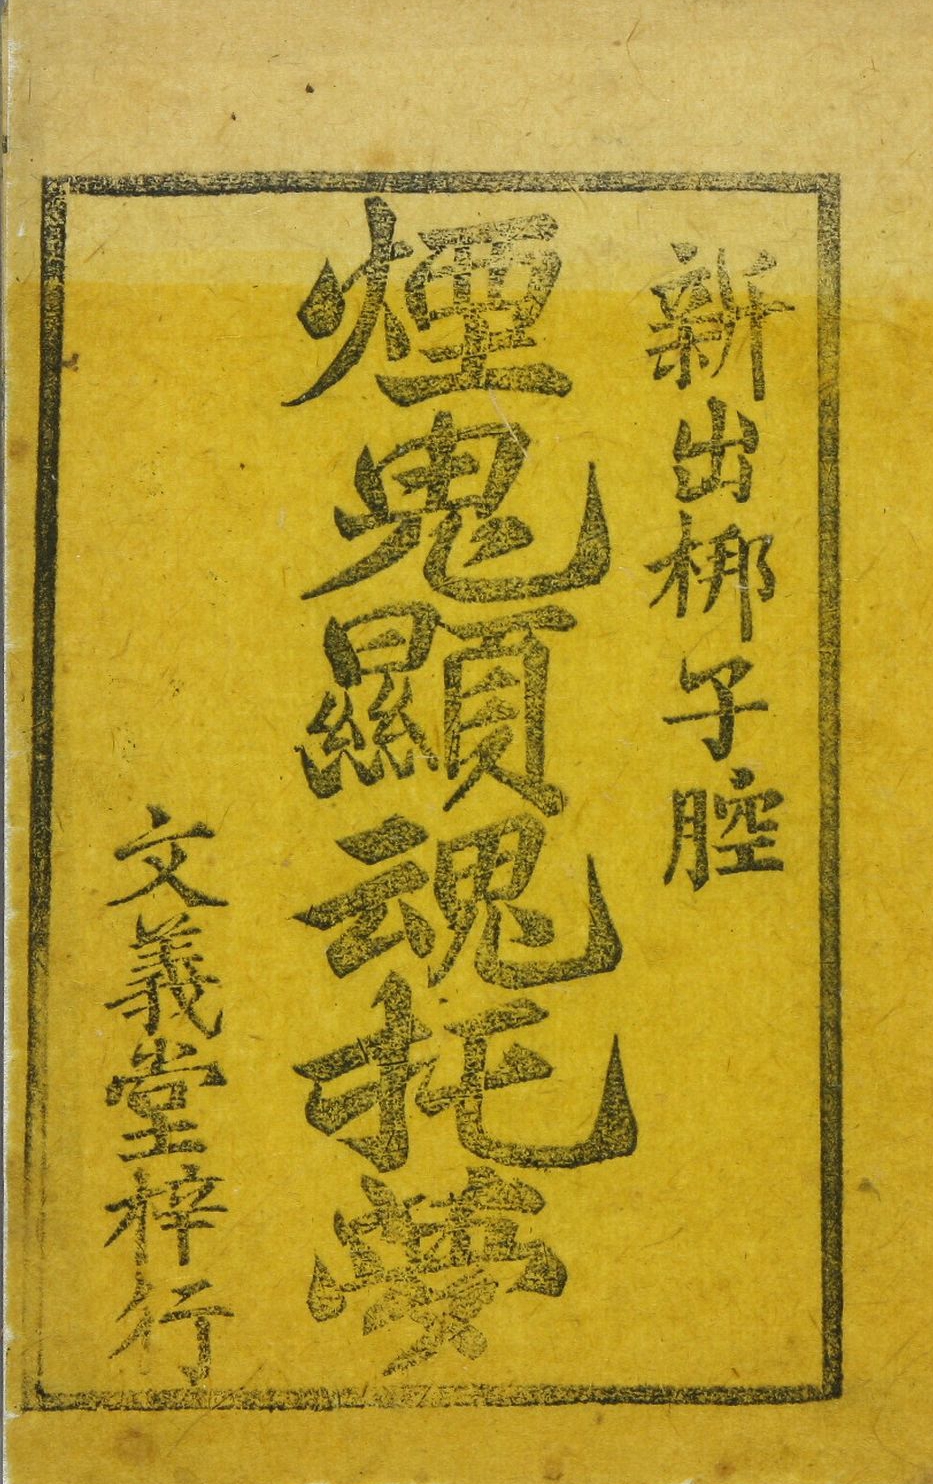 新出梆子腔
煙鬼顯魂托夢
文義堂梓行